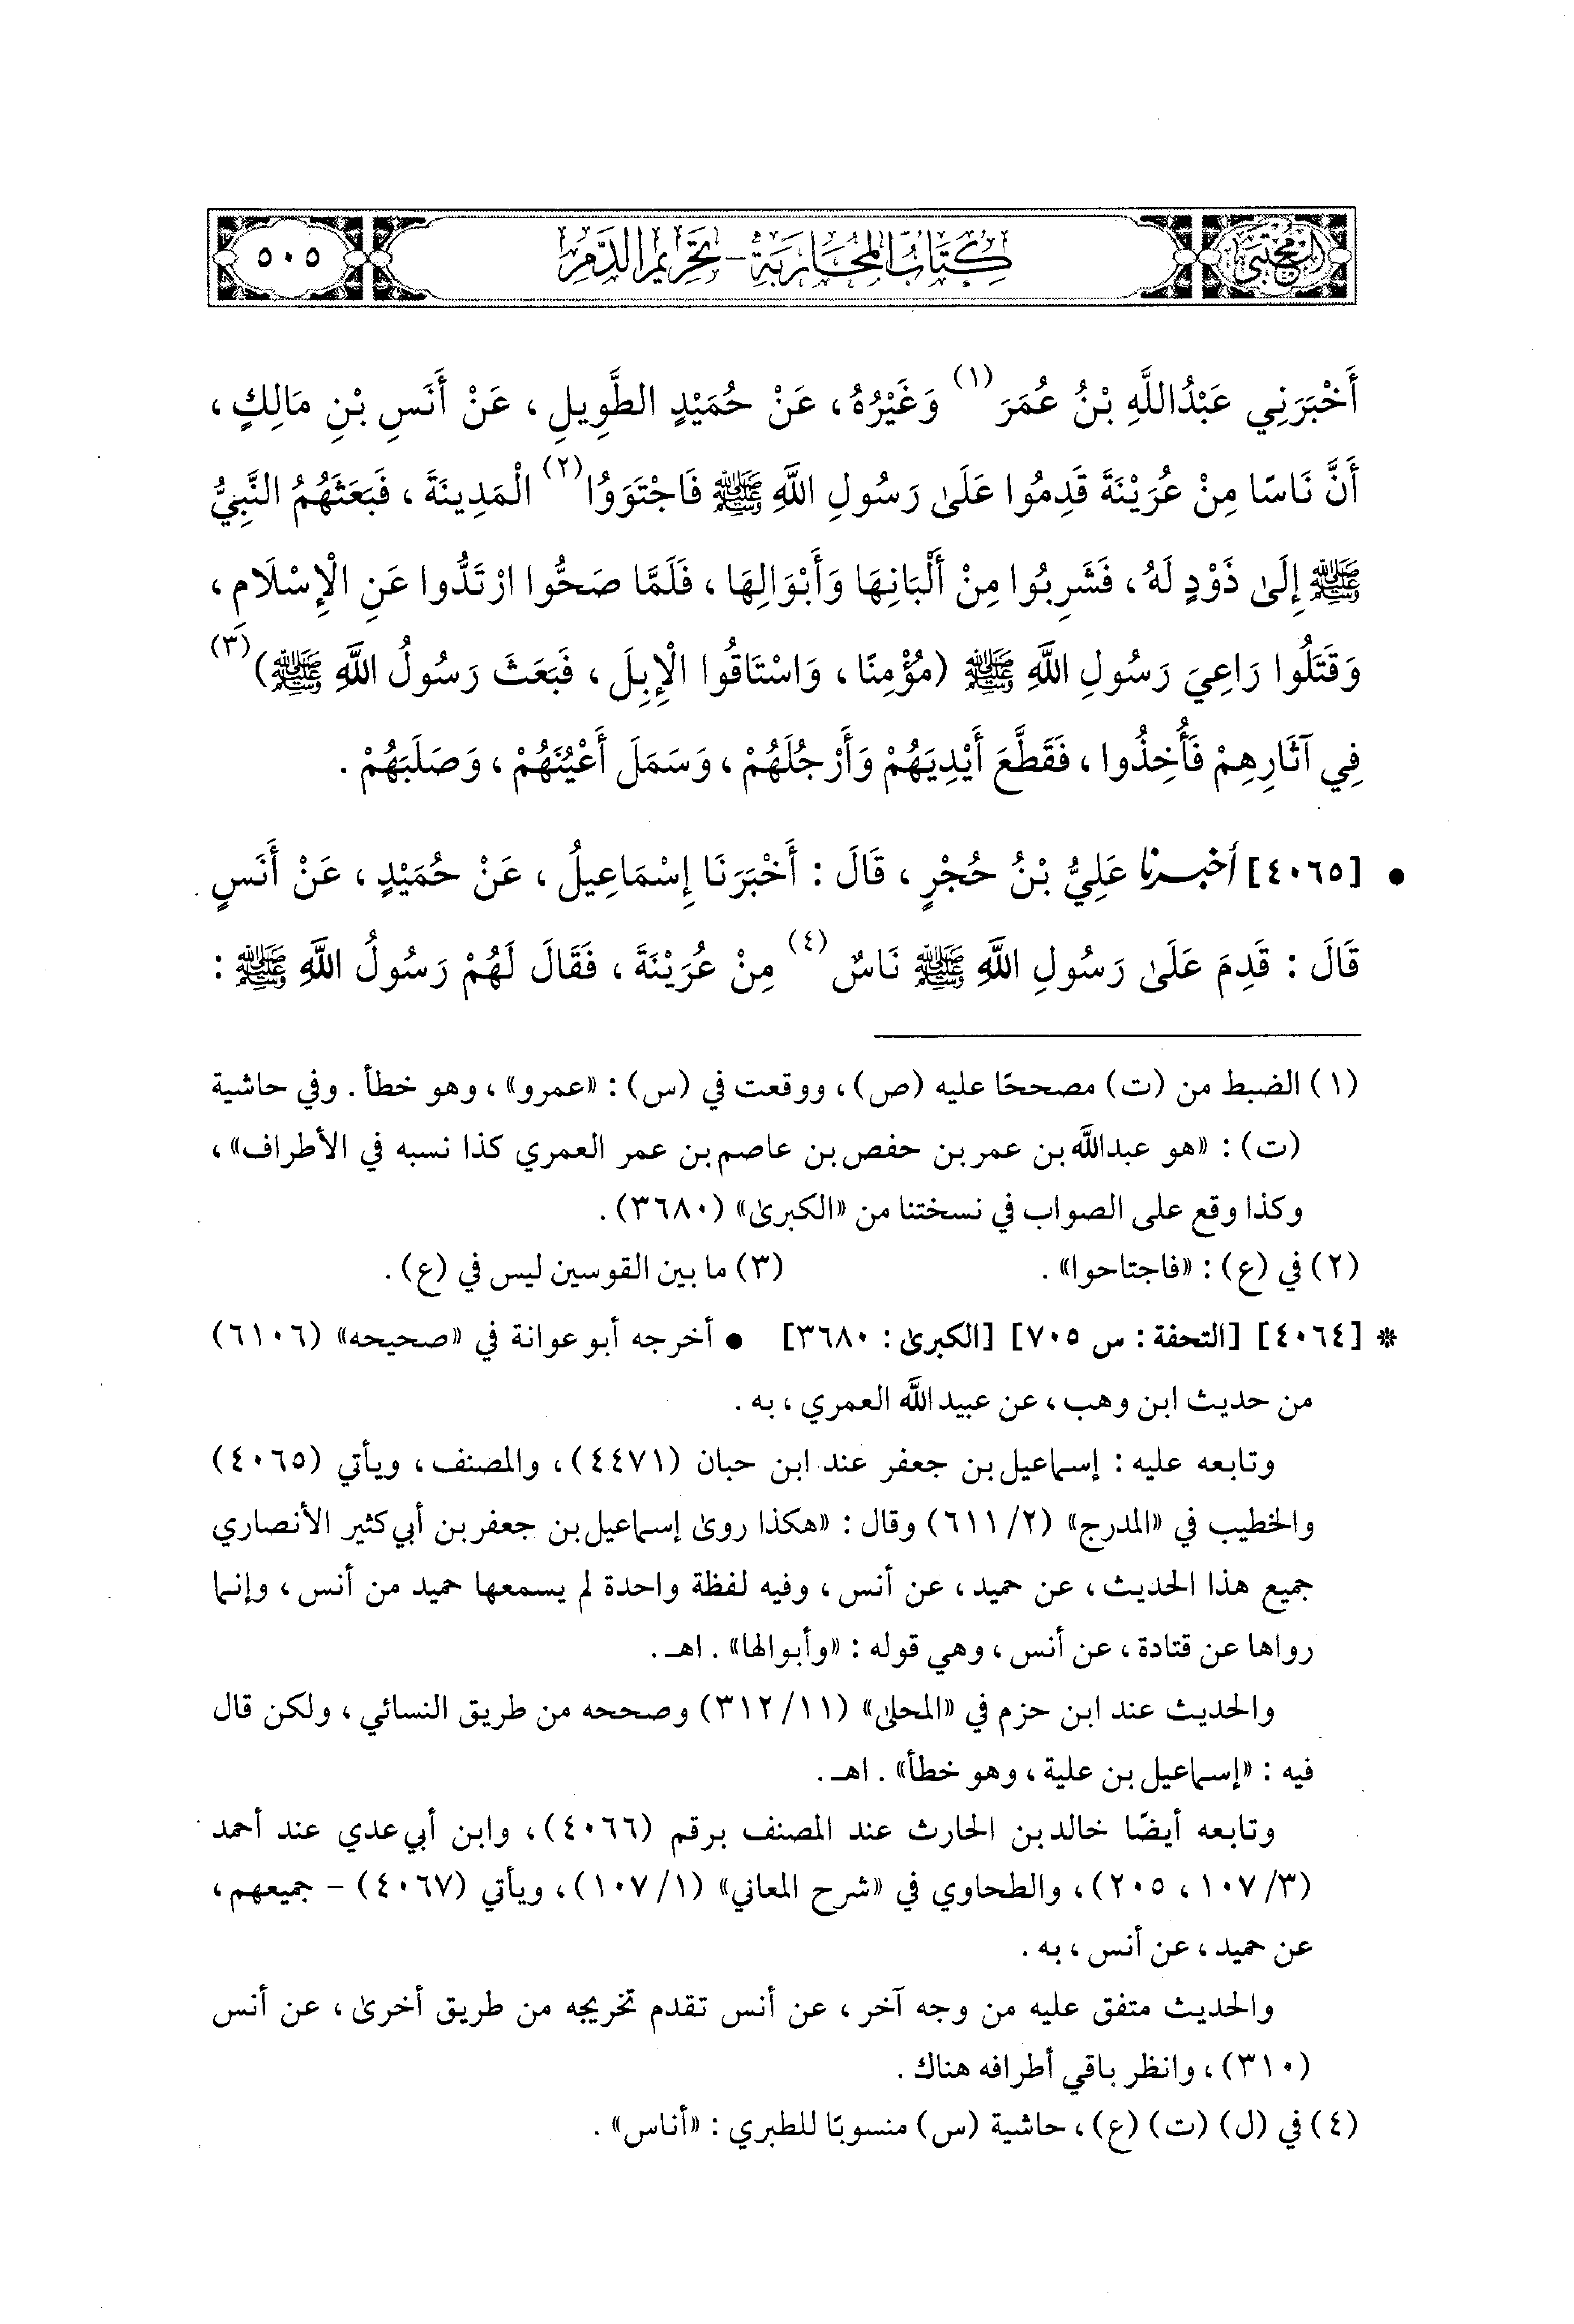 المجتبى
كتاب المحاربة - تحريم الدم
٥٠٥
أَخْبَرَنِي عَبْدُاللَّهِ بْنُ عُمَرَ (١) وَغَيْرُهُ، عَنْ حُمَيْدٍ الطَّوِيلِ، عَنْ أَنَسِ بْنِ مَالِكٍ،
أَنَّ نَاسًا مِنْ عُرَيْنَةَ قَدِمُوا عَلَىٰ رَسُولِ اللَّهِ ﷺ فَاجْتَوَوُا (٢) الْمَدِينَةَ، فَبَعَثَهُمُ النَّبِيُّ
ﷺ إِلَىٰ ذَوْدٍ لَهُ، فَشَرِبُوا مِنْ أَلْبَانِهَا وَأَبْوَالِهَا، فَلَمَّا صَحُّوا ارْتَدُّوا عَنِ الْإِسْلَامِ،
وَقَتَلُوا رَاعِيَ رَسُولِ اللَّهِ ﷺ (مُؤْمِنًا، وَاسْتَاقُوا الْإِبِلَ، فَبَعَثَ رَسُولُ اللَّهِ ﷺ) (٣)
فِي آثَارِهِمْ فَأُخِذُوا، فَقَطَّعَ أَيْدِيَهُمْ وَأَرْجُلَهُمْ، وَسَمَلَ أَعْيُنَهُمْ، وَصَلَبَهُمْ.
• [٤٠٦٥] أخبرنا عَلِيُّ بْنُ حُجْرٍ، قَالَ: أَخْبَرَنَا إِسْمَاعِيلُ، عَنْ حُمَيْدٍ، عَنْ أَنَسٍ
قَالَ: قَدِمَ عَلَىٰ رَسُولِ اللَّهِ ﷺ نَاسٌ (٤) مِنْ عُرَيْنَةَ، فَقَالَ لَهُمْ رَسُولُ اللَّهِ ﷺ:
(١) الضبط من (ت) مصححًا عليه (ص)، ووقعت في (س): «عمرو»، وهو خطأ. وفي حاشية
(ت): «هو عبدالله بن عمر بن حفص بن عاصم بن عمر العمري كذا نسبه في الأطراف»،
وكذا وقع على الصواب في نسختنا من «الكبرىٰ» (٣٦٨٠).
(٢) في (ع): «فاجتاحوا». (٣) ما بين القوسين ليس في (ع).
* [٤٠٦٤] [التحفة: س ٧٠٥] [الكبرىٰ: ٣٦٨٠] • أخرجه أبو عوانة في «صحيحه» (٦١٠٦)
من حديث ابن وهب، عن عبيدالله العمري، به.
وتابعه عليه: إسماعيل بن جعفر عند ابن حبان (٤٤٧١)، والمصنف، ويأتي (٤٠٦٥)
والخطيب في «المدرج» (٢/ ٦١١) وقال: «هكذا روىٰ إسماعيل بن جعفر بن أبي كثير الأنصاري
جميع هذا الحديث، عن حميد، عن أنس، وفيه لفظة واحدة لم يسمعها حميد من أنس، وإنما
رواها عن قتادة، عن أنس، وهي قوله: «وأبوالها». اهـ.
والحديث عند ابن حزم في «المحلىٰ» (١١/ ٣١٢) وصححه من طريق النسائي، ولكن قال
فيه: «إسماعيل بن علية، وهو خطأ». اهـ.
وتابعه أيضًا خالد بن الحارث عند المصنف برقم (٤٠٦٦)، وابن أبي عدي عند أحمد
(٣/ ١٠٧، ٢٠٥)، والطحاوي في «شرح المعاني» (١/ ١٠٧)، ويأتي (٤٠٦٧) - جميعهم،
عن حميد، عن أنس، به.
والحديث متفق عليه من وجه آخر، عن أنس تقدم تخريجه من طريق أخرىٰ، عن أنس
(٣١٠)، وانظر باقي أطرافه هناك.
(٤) في (ل) (ت) (ع)، حاشية (س) منسوبًا للطبري: «أناس».